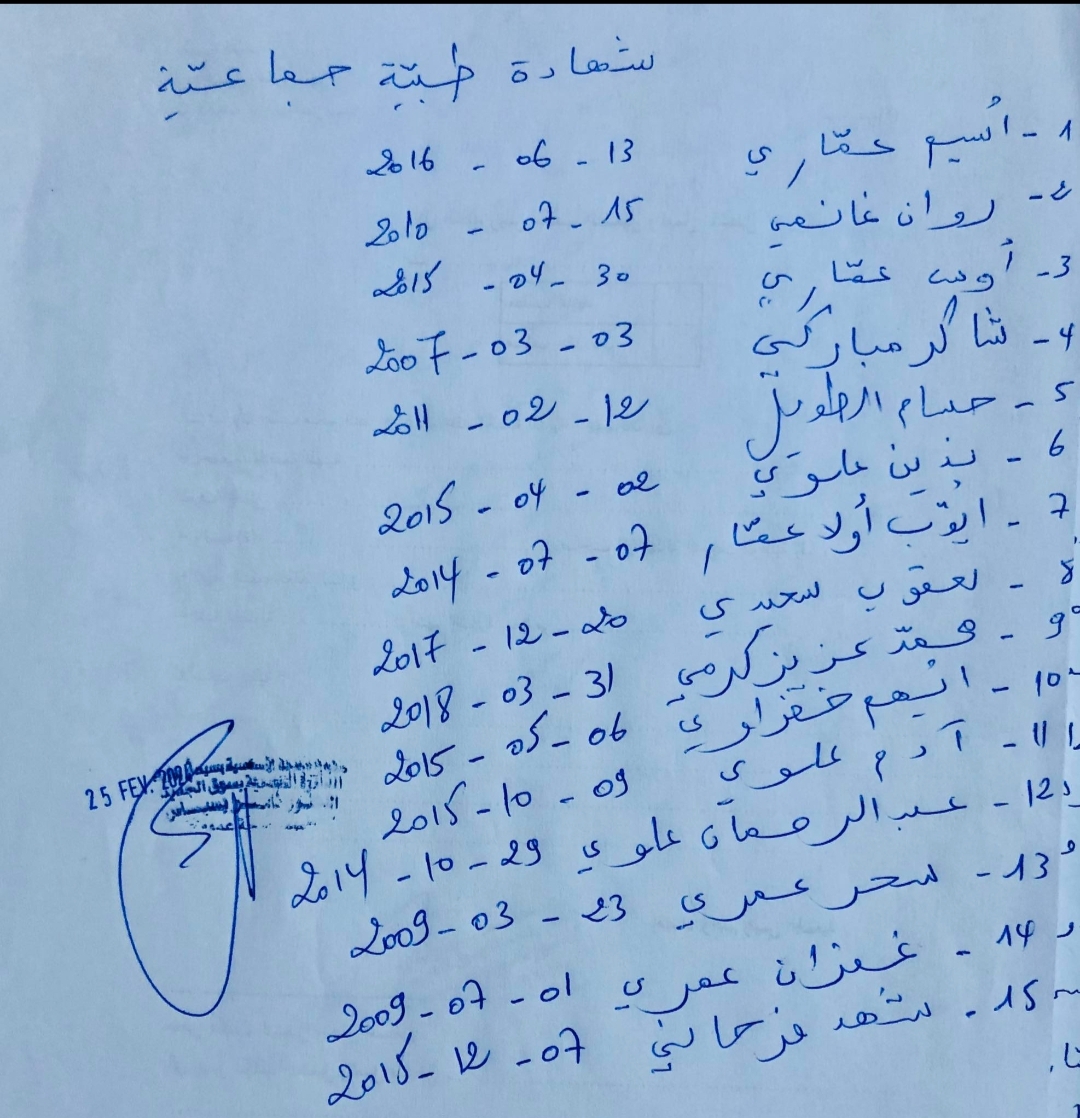 شهادة طبيّة جماعيّة
1 - أسيم عمّاري 13 - 06 - 2016
2 - روان غانمي 15 - 07 - 2010
3 - أوس عمّاري 30 - 04 - 2015
4 - شاكر مباركي 03 - 03 - 2007
5 - حسام الطويل 12 - 02 - 2011
6 - علوي 02 - 04 - 2015
7 - ايّوب أولا عمّار 07 - 07 - 2014
8 - يعقوب سعيدي 20 - 12 - 2017
9 - محمّد عزيز كرمي 31 - 03 - 2018
10 - 06 - 05 - 2015
11 - آدم علوي 09 - 10 - 2015
12 - عبد الرحمان علوي 29 - 10 - 2014
13 - سحر عمري 23 - 03 - 2009
14 - عمري 01 - 07 - 2009
15 - شهد فرحاني 07 - 12 - 2015
25 FEV.